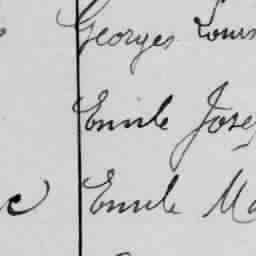 Georges Louis
Emile Jose
c Emile Ma